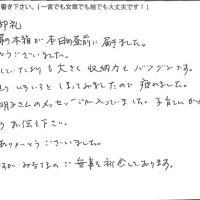 書き下さい。(一言でも文章でも絵でも大丈夫です!)
御礼
の本箱が本日の昼前に届きました。
とうございました。
していたよりも大きく収納力もバツグンです。
いろいろとしまってみましたので疲れました。
さんのメッセージが入っていました。子育さんが
お伝え下さい。
ありがとうございました。
みなさまのご無事を祈念しております。